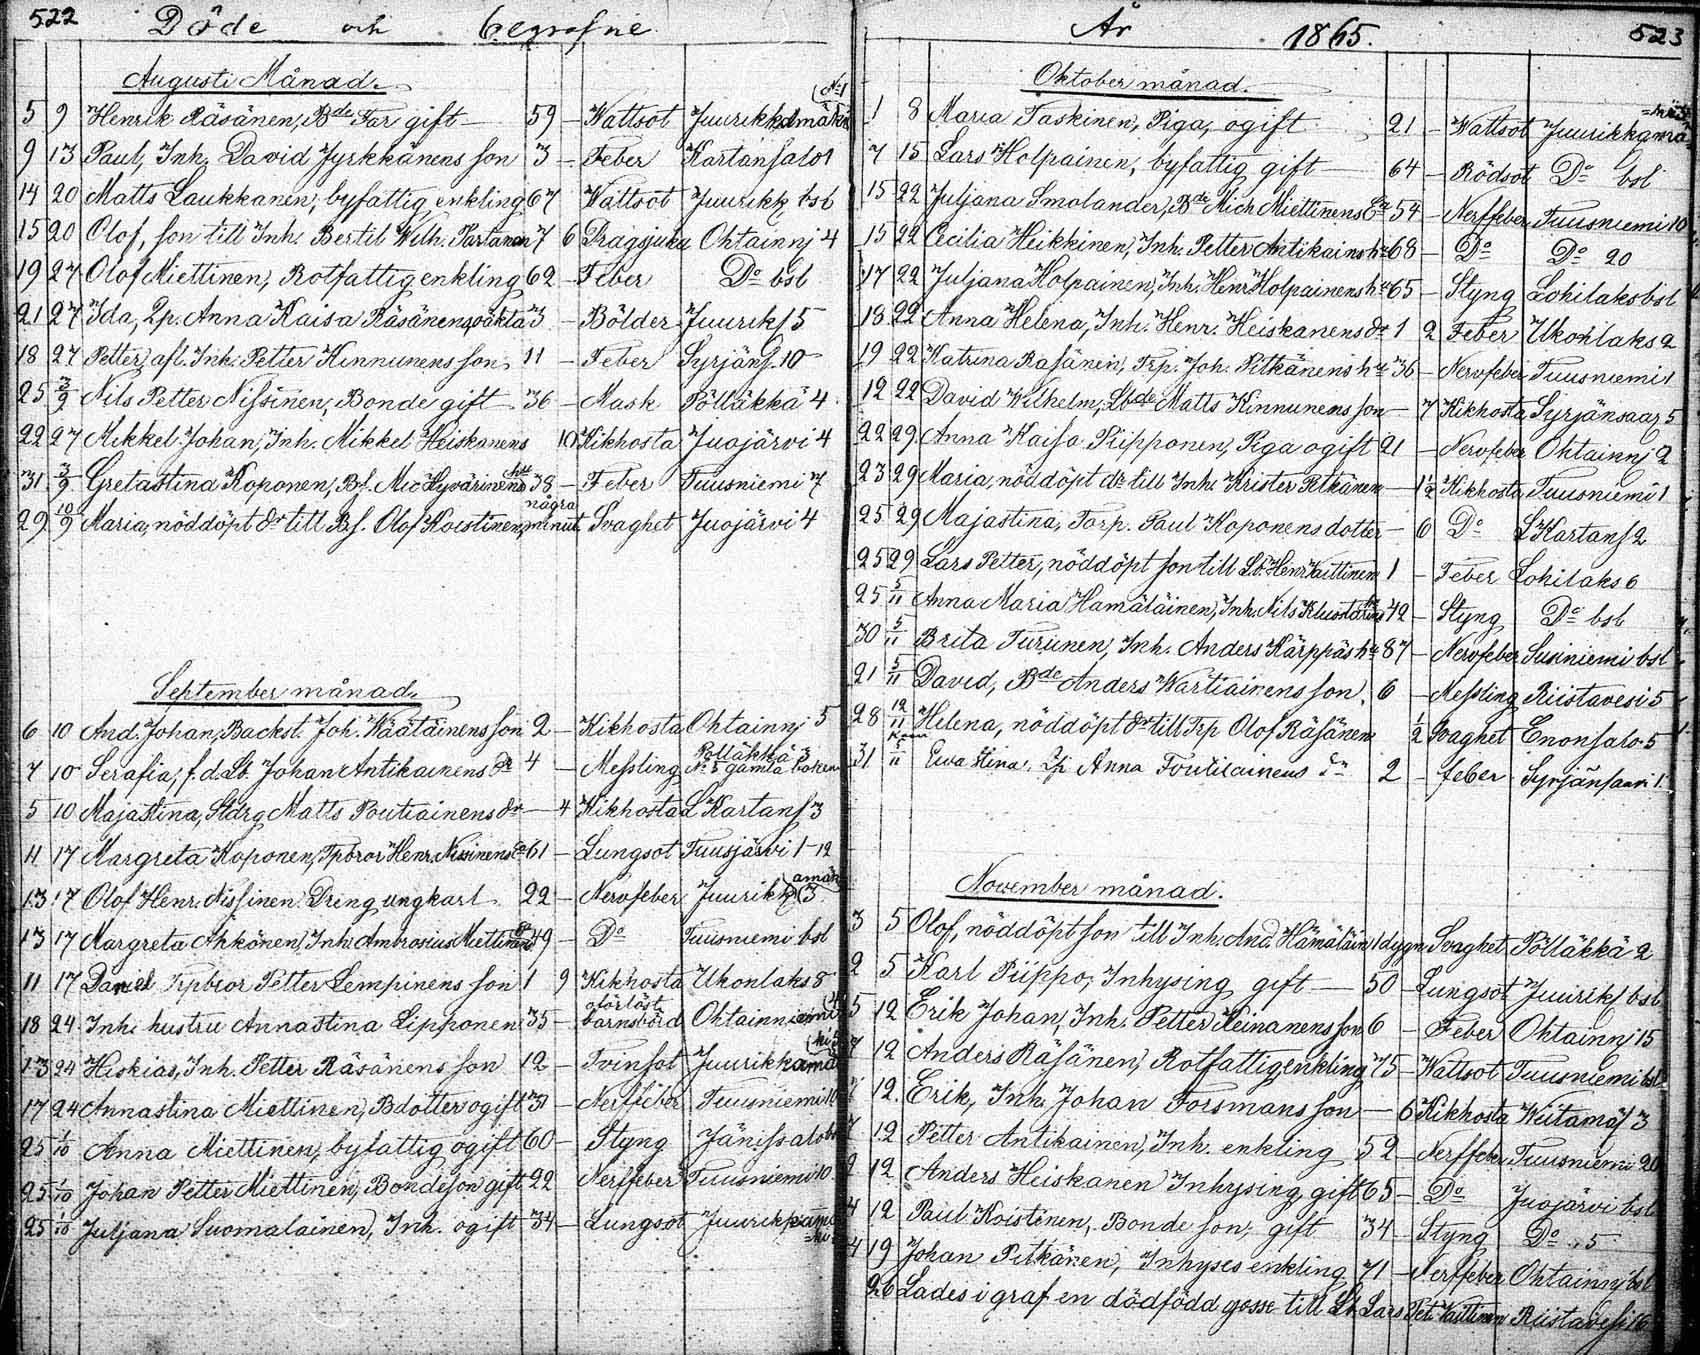 522 Döde och begrafne
Augusti Månad.
5 9 Henrik Räsänen, Bde Far gift 59 - Wattsot Juurikkamäki № 1
9 13 Paul, Inh. David Jyrkkänens son 3 - Feber Kartansalo 1
14 20 Matts Laukkanen, byfattig enkling 67 Wattsot Juurikk bsl
15 20 Olof, son till Inh. Bertil Wilh. Partanen 7 6 Dragsjuka Ohtainnj 4
19 27 Olof Miettinen, Rotfattig enkling 62 - Feber Do bsl
21 27 Ida, Lp. Anna Kaisa Räsänens oäkta 3 - Bölder Juurikk 5
18 27 Petter, afl. Inh. Petter Kinnunens son 11 - Feber Syrjäns. 10
25 3/9 Nils Petter Nissinen, Bonde gift 36 - Mask Pölläkkä 4
22 27 Mikkel Johan, Inh. Mikkel Heiskanens 10 Kikhosta Juojärvi 4
31 3/9 Gretastina Koponen, Bs. Mic Hyvärinens 38 - Feber Tuusniemi 7
29 10/9 Maria, nöddöpt dr till Bs. Olof Koistinen, några minut. Svaghet Juojärvi 4
September månad.
6 10 And. Johan, Backst. Joh. Wäätäinens son 2 - Kikhosta Ohtainnj 5
7 10 Serafia, f.d. Lb. Johan Antikainens dr 4 - Messling Pölläkkä 3 № 5 gamla boken
5 10 Majastina, Stdrg Matts Poutiainens dr - 4 Kikhosta L Kartans 3
11 17 Margreta Koponen, Tpbror Henr. Nissinens Ea 61 - Lungsot Tuusjärvi 1-12
13 17 Olof Henr. Nissinen Dreng ungkarl 22 - Nervfeber Juurikk 3
13 17 Margreta Ahkönen, Inh. Ambrosius Miettinens 49 - Do Tuusniemi bsl
11 17 Daniel Trpbror Petter Lempinens son 1 9 Kikhosta Ukonlaks 8
18 24 Inh. hustru Annastina Lipponen 35 - oförlöst barnsbörd Ohtainniemi
13 24 Hiskias, Inh. Petter Räsänens son 12 - Tvinsot Juurikkamä
17 24 Annastina Miettinen, Bdotter ogift 31 - Nerffeber Tuusniemi 10
25 1/10 Anna Miettinen, byfattig ogift 60 - Styng Jänissalo
25 1/10 Johan Petter Miettinen, Bondeson gift 22 Nerffeber Tuusniemi 10
25 1/10 Juljana Suomalainen, Inh. ogift 34 - Lungsot Juurikkamä
År 1865. 523
Oktober månad.
1 8 Maria Taskinen, Piga, ogift 21 - Wattsot Juurikkamä
7 15 Lars Holpainen, byfattig gift 64 - Rödsot Do bsl
15 22 Juljana Smolander, Bde Mich Miettinens Ea 54 - Nerffeber Tuusniemi 10
15 22 Cecilia Heikkinen, Inh. Petter Antikains hu 68 - Do Do 20
17 22 Juljana Holpainen, Inh. Henr Holpainens hu 65 - Styng Lohilaks bsl
18 22 Anna Helena, Inh. Henr. Heiskanens dr 1 2 Feber Ukonlaks 2
19 22 Katrina Räsänen, Trp. Joh. Pitkänens hu 36 - Nervfeber Tuusniemi 1
12 22 David Wilhelm, Lbde Matts Kinnunens son - 7 Kikhosta Syrjänsaar 5
22 29 Anna Kaisa Piipponen, Piga ogift 21 - Nervfeber Ohtainnj 2
23 29 Maria, nöddöpt dr till Inh. Krister Pitkänen - 1½ Kikhosta Tuusniemi 1
25 29 Majastina, Torp. Paul Koponens dotter - 6 Do L Kartans 2
25 29 Lars Petter, nöddöpt son till Lb. Henr Vaittinen 1 - Feber Lohilaks 6
25 5/11 Anna Maria Hämäläinen, Inh. Nils 42 - Styng Do bsl
30 5/11 Brita Turunen, Inh. Anders Kärppäs hu 87 - Nervfeber Susiniemi bsl
21 5/11 David, Bde Anders Wartiainens son 6 - Messling Riistavesi 5
28 12/11 Helena, nöddöpt dr till Trp Olof Räsänen ½ Svaghet Enonsalo 5
31 5/11 Ewa Stina, Lp Anna Toutilainens dr 2 - feber Syrjänsaari 1
November månad.
3 5 Olof, nöddöpt son till Inh. And Hämäläin 1 dygn Svaghet Pölläkkä 2
2 5 Karl Piippo, Inhysing gift 50 - Lungsot Juurikk bsl
5 12 Erik Johan, Inh. Petter Heinanens son 6 - Feber Ohtainnj 15
7 12 Anders Räsänen, Rotfattig enkling 75 - Wattsot Tuusniemi bsl
12. Erik, Inh. Johan Forsmans son - 6 Kikhosta Weitamäs 3
7 12 Petter Antikainen, Inh. enkling 52 - Nerffeber Tuusniemi 20
12 Anders Heiskanen Inhysing gift 65 - Do Juojärvi bsl
4 12 Paul Koistinen, Bonde son, gift 34 - Styng Do 5
4 19 Johan Pitkänen, Inhyses enkling 71 - Nerffeber Ohtainnj bsl
26 Lades i graf en dödfödd gosse till Lb Lars Pet. Vaittinen Riistavesi 16